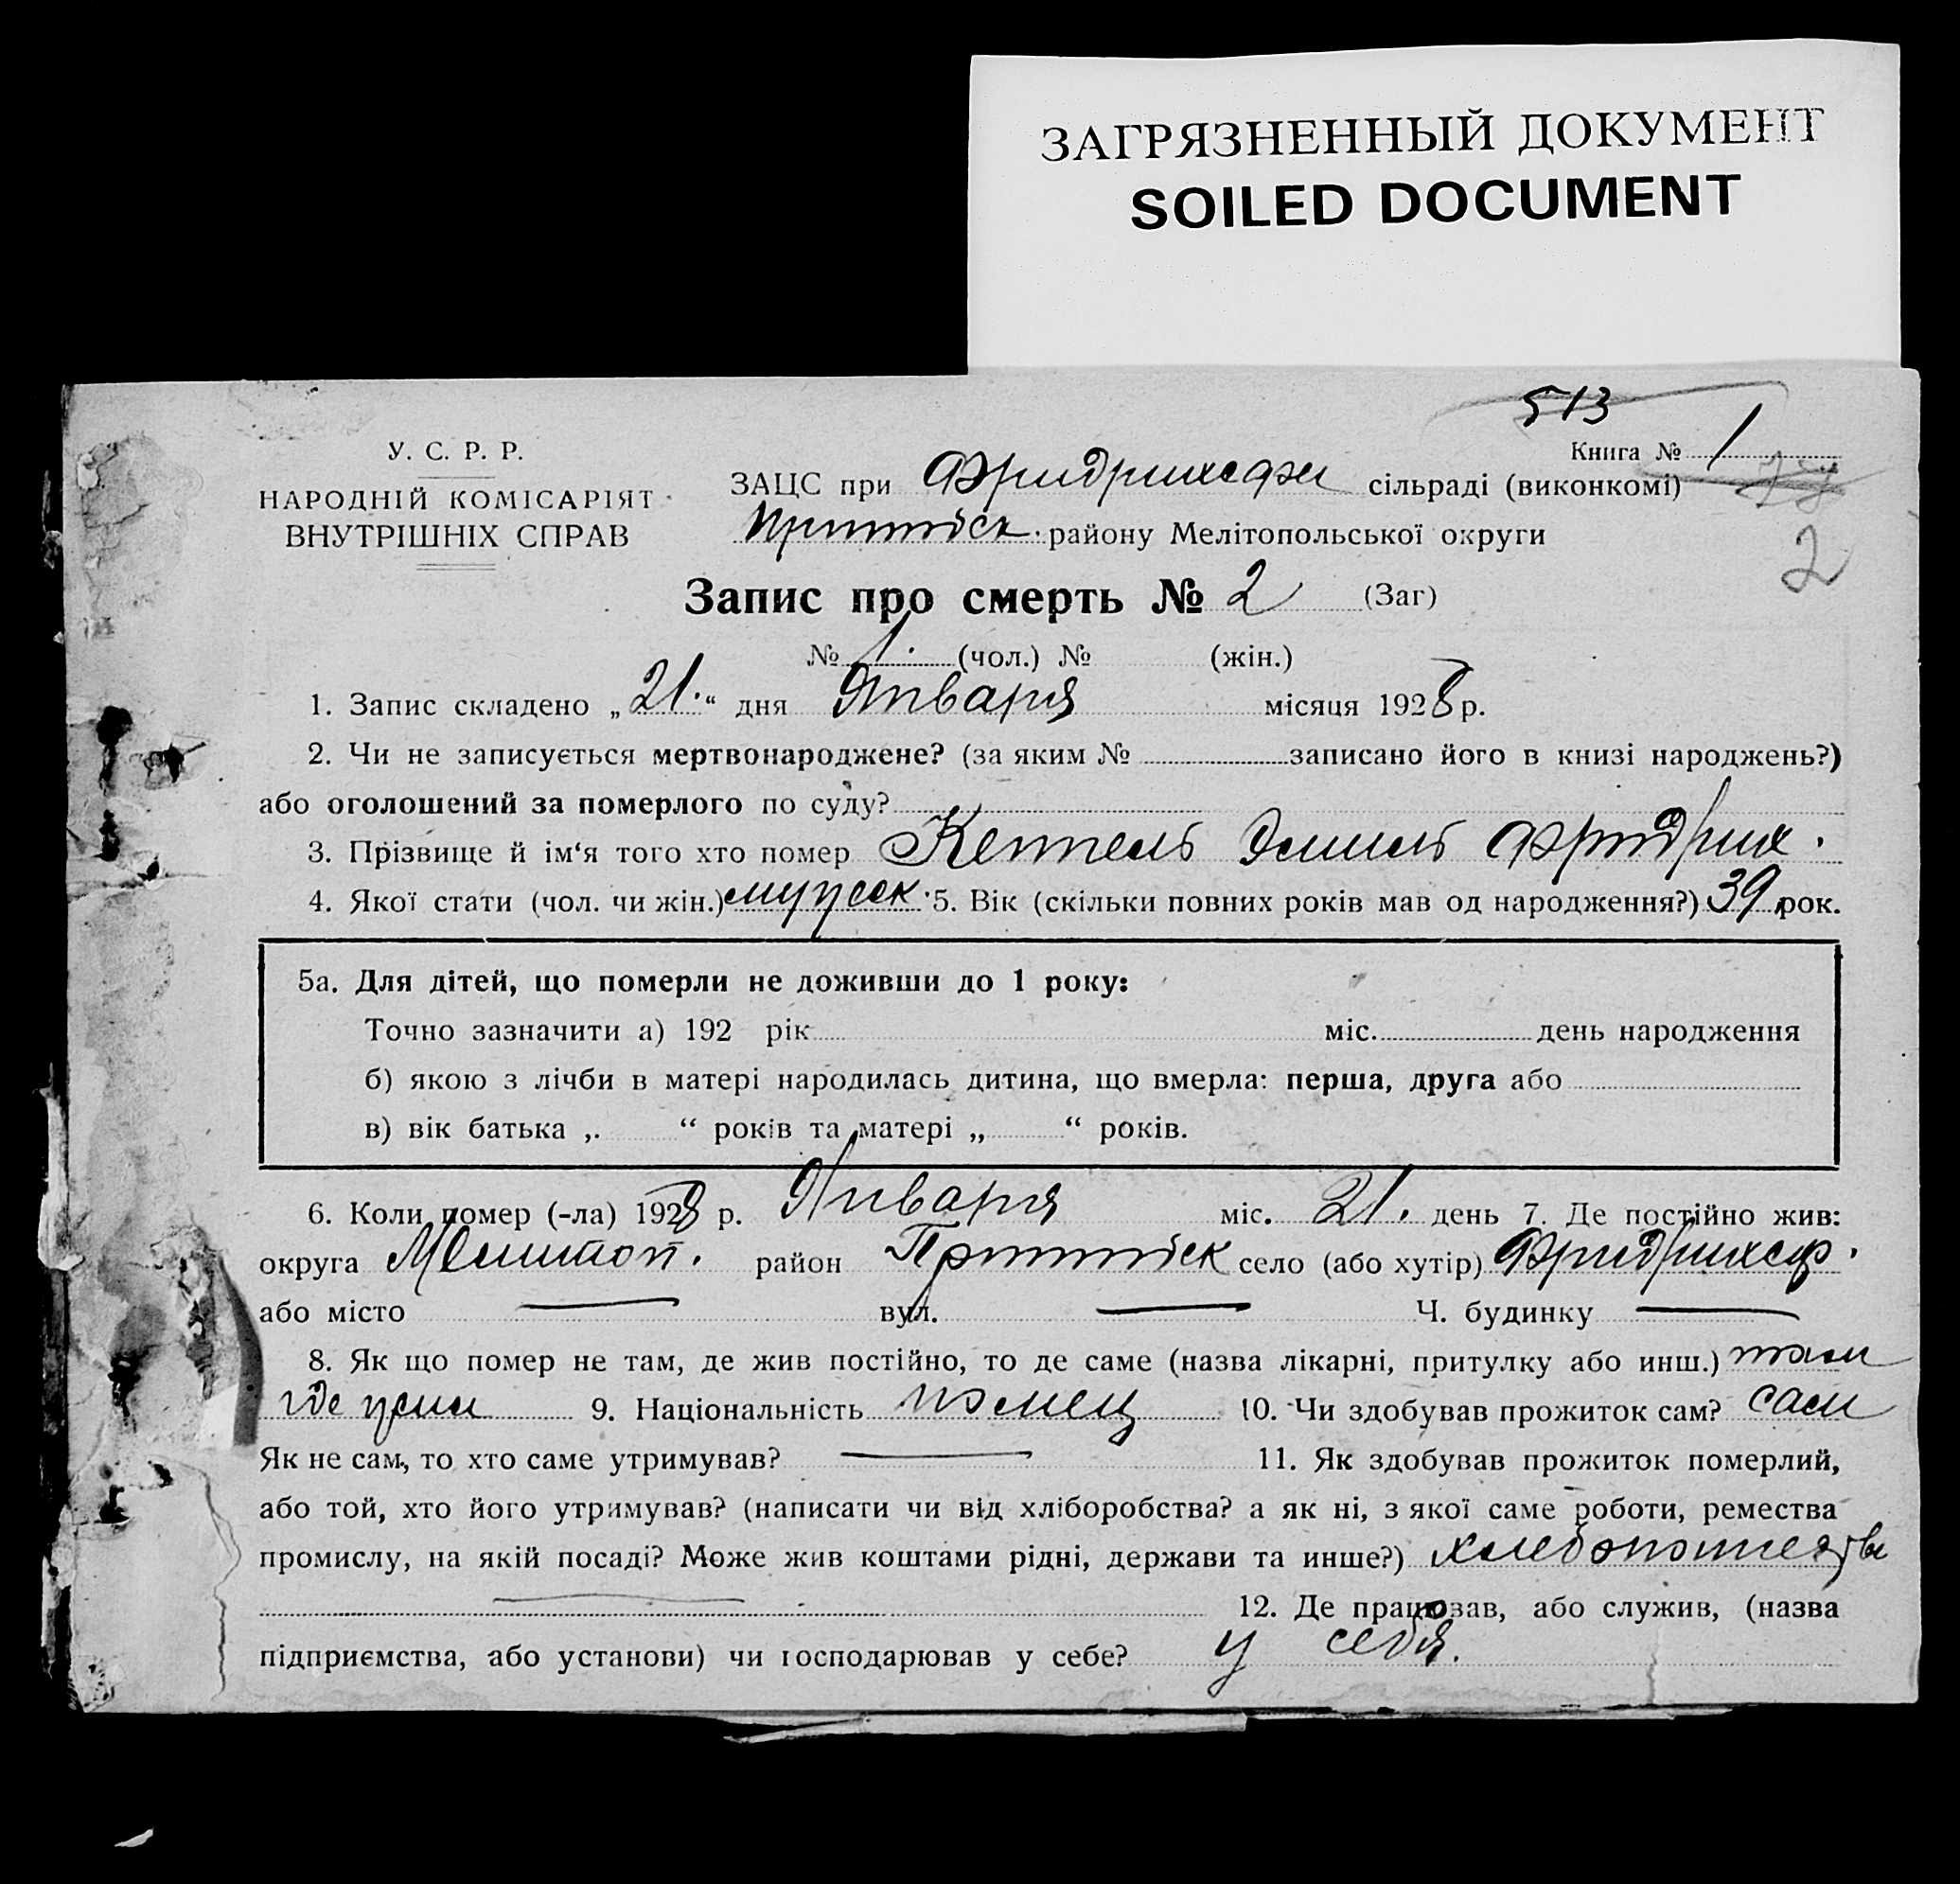 ЗАГРЯЗНЕННЫЙ ДОКУМЕНТ
SOILED DOCUMENT
513
У. С. Р. Р.
НАРОДНІЙ КОМІСАРІЯТ
ВНУТРІШНІХ СПРАВ
Книга № 1
ЗАЦС при Фридрихсфел сільраді (виконкомі)
Пришибск. району Мелітопольської округи
2
Запис про смерть № 2 (Заг)
№ 1. (чол.) № (жін.)
1. Запис складено „21.“ дня Января місяця 1928 р.
2. Чи не записується мертвонароджене? (за яким № записано його в книзі народжень?)
або оголошений за померлого по суду?
3. Прізвище й ім‘я того хто помер Кеппель Эмиль Фридрих.
4. Якої стати (чол. чи жін.) мужск. 5. Вік (скільки повних років мав од народження?) 39 рок.
5а. Для дітей, що померли не доживши до 1 року:
Точно зазначити а) 192 рік міс. день народження
б) якою з лічби в матері народилась дитина, що вмерла: перша, друга або
в) вік батька „ “ років та матері „ “ років.
6. Коли помер (-ла) 1928 р. Января міс. 21. день 7. Де постійно жив:
округа Мелитоп. район Пришибск село (або хутір) Фридрихсф.
або місто — вул. — Ч. будинку —
8. Як що помер не там, де жив постійно, то де саме (назва лікарні, притулку або инш.) там
где жил 9. Національність немец 10. Чи здобував прожиток сам? сам
Як не сам, то хто саме утримував? — 11. Як здобував прожиток померлий,
або той, хто його утримував? (написати чи від хліборобства? а як ні, з якої саме роботи, ремества
промислу, на якій посаді? Може жив коштами рідні, держави та инше?) хлебопашество
— 12. Де працював, або служив, (назва
підприємства, або установи) чи господарював у себе? у себя.